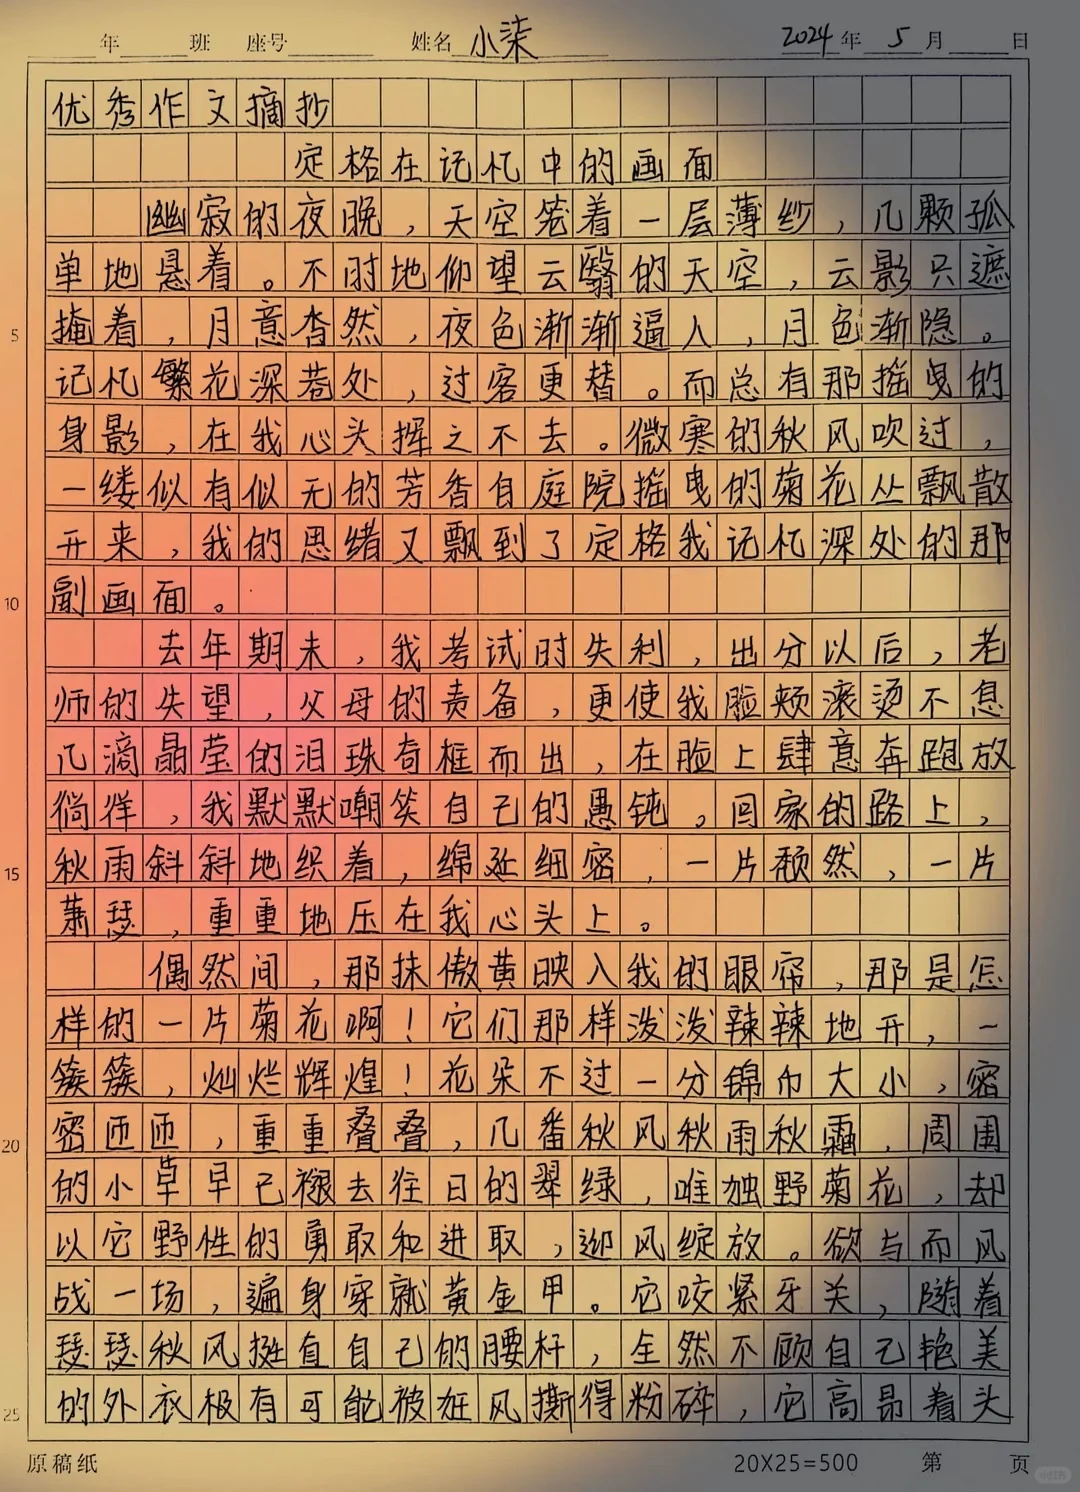 年 班 座号 姓名 小柒 2024年 5月 日
优秀作文摘抄
定格在记忆中的画面
幽寂的夜晚，天空笼着一层薄纱，几颗孤
单地悬着。不时地仰望云翳的天空，云影只遮
5 掩着，月意杳然，夜色渐渐逼人，月色渐隐。
记忆繁花深巷处，过客更替。而总有那摇曳的
身影，在我心头挥之不去。微寒的秋风吹过，
一缕似有似无的芳香自庭院摇曳的菊花丛飘散
开来，我的思绪又飘到了定格我记忆深处的那
10 副画面。
去年期末，我考试时失利，出分以后，老
师的失望，父母的责备，更使我脸颊滚烫不息
几滴晶莹的泪珠夺框而出，在脸上肆意奔跑放
徜徉，我默默嘲笑自己的愚钝。回家的路上，
15 秋雨斜斜地织着，绵延细密，一片颓然，一片
萧瑟，重重地压在我心头上。
偶然间，那抹傲黄映入我的眼帘，那是怎
样的一片菊花啊！它们那样泼泼辣辣地开，一
簇簇，灿烂辉煌！花朵不过一分锦币大小，密
20 密匝匝，重重叠叠，几番秋风秋雨秋霜，周围
的小草早已褪去往日的翠绿，唯独野菊花，却
以它野性的勇敢和进取，迎风绽放。欲与而风
战一场，遍身穿就黄金甲。它咬紧牙关，随着
瑟瑟秋风挺直自己的腰杆，全然不顾自己艳美
25 的外衣极有可能被狂风撕得粉碎，它高昂着头
原稿纸 20X25=500 第 页